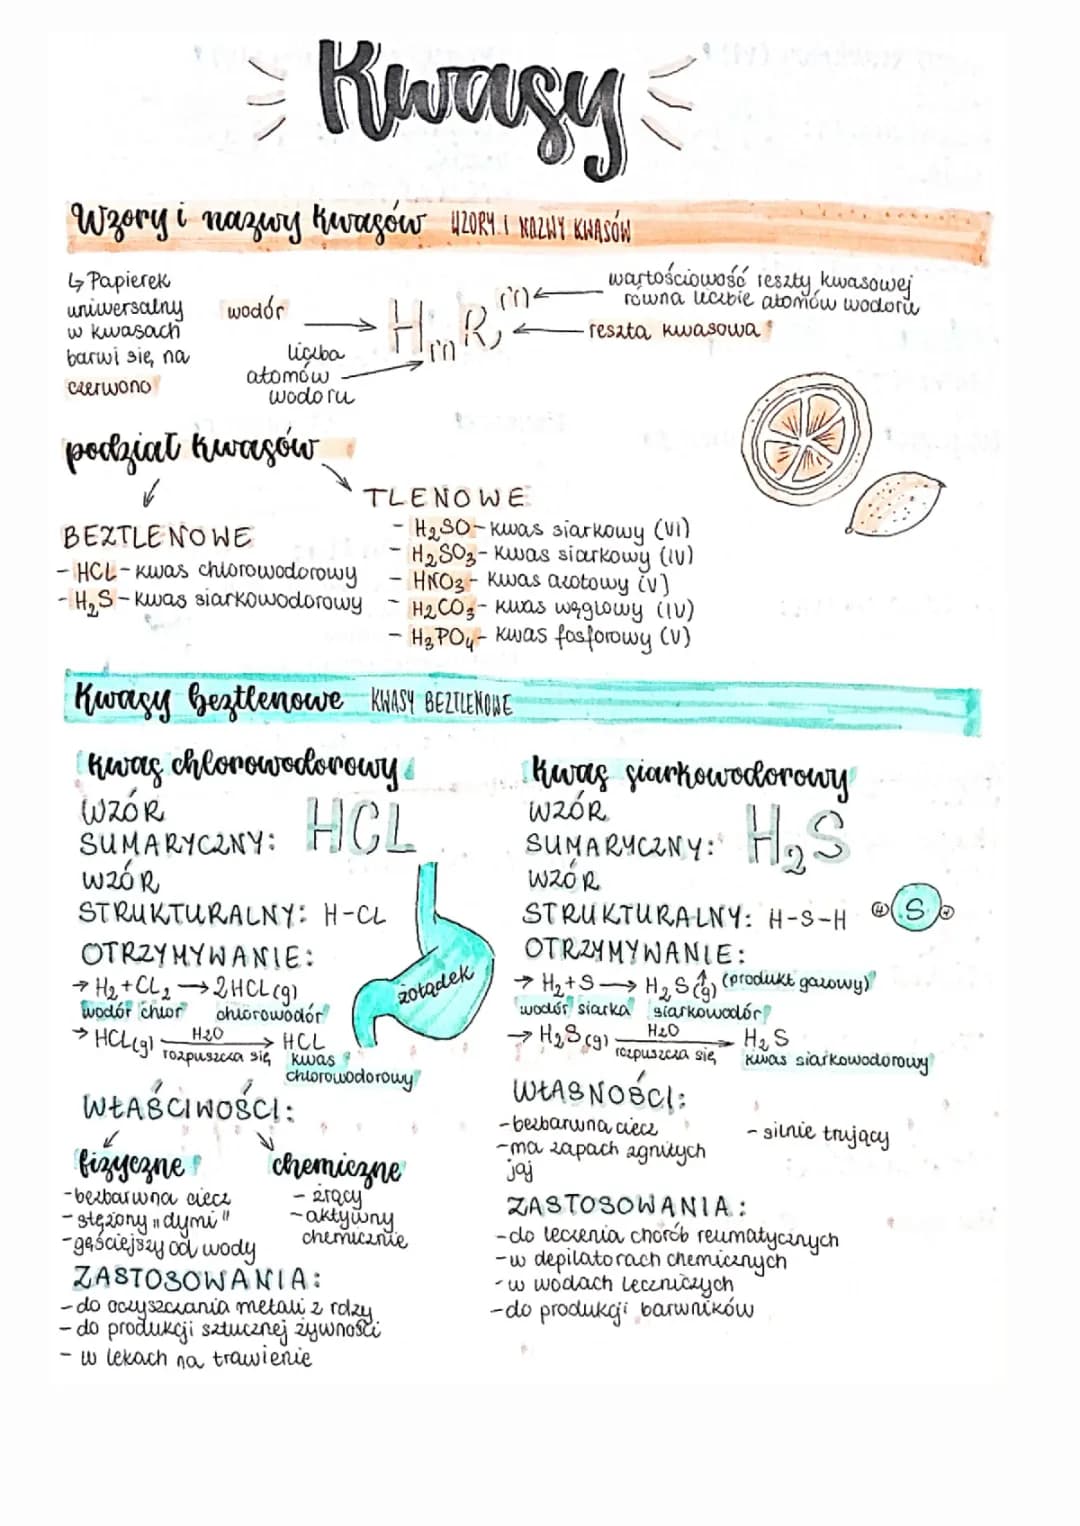 Kwasy
Wzory i nazwy kwasów WZORY I NAZWY KWASÓW
↳ Papierek
uniwersalny
w kwasach
barwi się na
czerwono
wodór
liczba
atomów
wodoru
HₘRᵐ
wartościowość reszty kwasowej
równa liczbie atomów wodoru
reszta kwasowa
podział kwasów
BEZTLENOWE
- HCL - kwas chlorowodorowy
- H₂S - kwas siarkowodorowy
TLENOWE
- H₂SO - kwas siarkowy (VI)
- H₂SO₃ - kwas siarkowy (IV)
- HNO₃ - kwas azotowy (V)
- H₂CO₃ - kwas węglowy (IV)
- H₃PO₄ - kwas fosforowy (V)
Kwasy beztlenowe KWASY BEZTLENOWE
Kwas chlorowodorowy
WZÓR
SUMARYCZNY: HCL
WZÓR
STRUKTURALNY: H-CL
OTRZYMYWANIE:
→ H₂ + CL₂ → 2HCL (g)
wodór chlor chlorowodór
→ HCL(g) H2O → HCL
rozpuszcza się kwas
chlorowodorowy
żołądek
WŁAŚCIWOŚCI:
fizyczne
- bezbarwna ciecz
- stężony "dymi"
- gęściejszy od wody
chemiczne
- żrący
- aktywny
chemicznie
ZASTOSOWANIA:
- do oczyszczania metali z rdzy
- do produkcji sztucznej żywności
- w lekach na trawienie
Kwas siarkowodorowy
WZÓR
SUMARYCZNY: H₂S
WZÓR
STRUKTURALNY: H-S-H
H S H
OTRZYMYWANIE:
→ H₂+S → H₂S↑(g) (produkt gazowy)
wodór siarka siarkowodór
→ H₂S (g) H2O → H₂S
rozpuszcza się kwas siarkowodorowy
WŁASNOŚCI:
- bezbarwna ciecz
- ma zapach zgniłych
jaj
- silnie trujący
ZASTOSOWANIA:
- do leczenia chorób reumatycznych
- w depilatorach chemicznych
- w wodach leczniczych
- do produkcji barwników